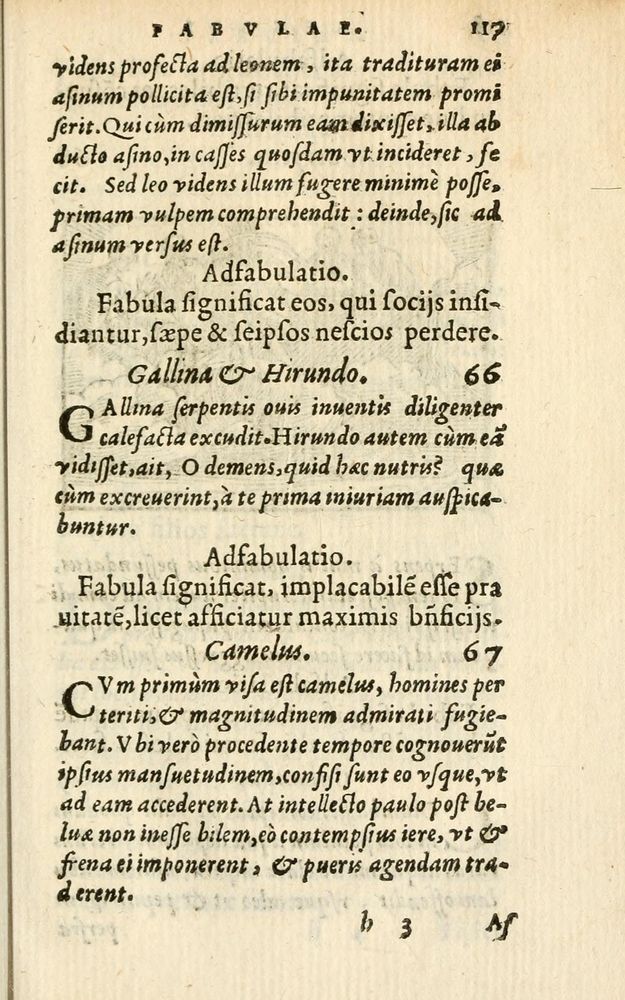 FABVLAE. 117
videns profecta ad leonem, ita tradituram ei
asinum pollicita est, si sibi impunitatem promi
serit. Qui cùm dimissurum eam dixisset, illa ab
ducto asino, in casses quosdam vt incideret, fe
cit. Sed leo videns illum fugere minimè posse,
primam vulpem comprehendit : deinde, sic ad
asinum versus est.
Adfabulatio.
Fabula significat eos, qui socijs insi-
diantur, sæpe & seipsos nescios perdere.
Gallina & Hirundo. 66
GAllina serpentis ouis inuentis diligenter
calefacta excudit. Hirundo autem cùm eã
vidisset, ait, O demens, quid hæc nutris? quæ
cùm excreuerint, à te prima iniuriam auspica-
buntur.
Adfabulatio.
Fabula significat, implacabilẽ esse pra
uitatẽ, licet afficiatur maximis bñficijs.
Camelus. 67
CVm primùm visa est camelus, homines per
teriti, & magnitudinem admirati fugie-
bant. Vbi verò procedente tempore cognouerũt
ipsius mansuetudinem, confisi sunt eo vsque, vt
ad eam accederent. At intellecto paulo pòst be-
luæ non inesse bilem, eò contempsius iere, vt &
frena ei imponerent, & pueris agendam tra-
derent.
h 3 As